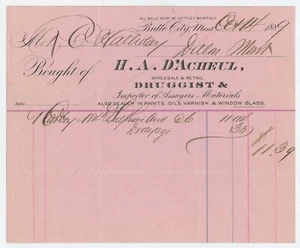 ALL BILLS MUST BE SETTLED MONTHLY
Butte City, Mont Oct 14 1889
Mr
Dillon Mont
Bought of H. A. D'ACHEUL,
WHOLESALE & RETAIL
DRUGGIST &
Importer of Assayers Materials
ALSO DEALER IN PAINTS, OILS, VARNISH & WINDOW GLASS.
1 Carboy 11 04
Drayage 35
$11.39